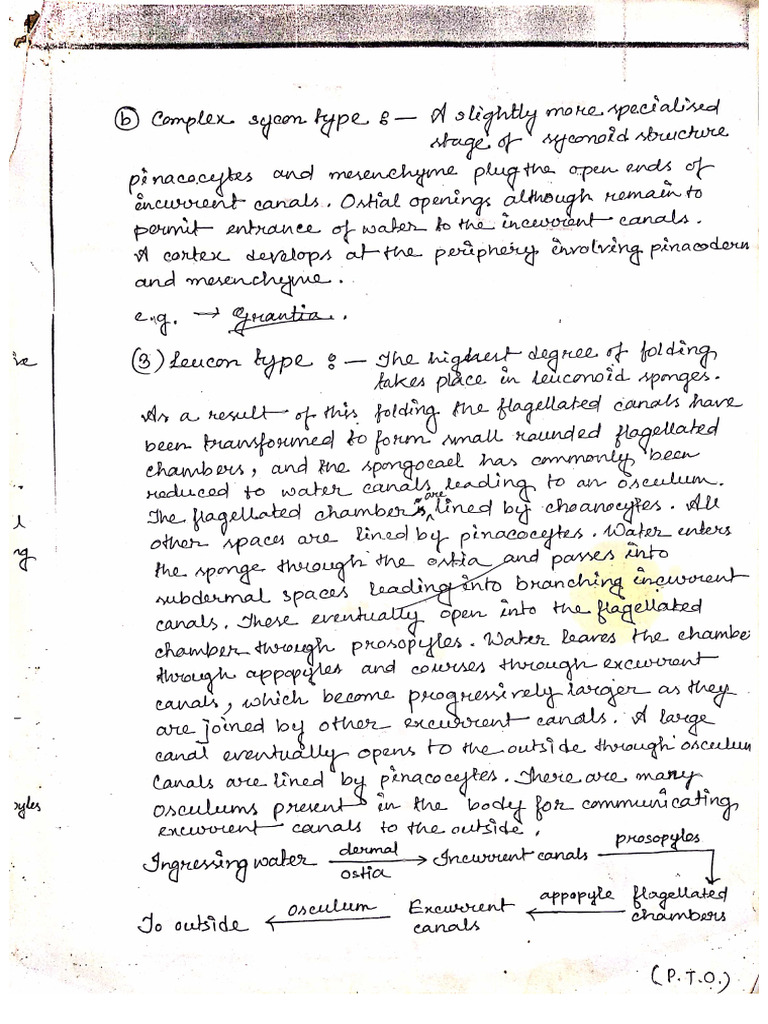 ⓑ Complex sycon type :— A slightly more specialised
stage of syconoid structure
pinacocytes and mesenchyme plug the open ends of
incurrent canals. Ostial openings although remain to
permit entrance of water to the incurrent canals.
A cortex develops at the periphery involving pinacoderm
and mesenchyme.
e.g. → Grantia.
③ Leucon type :— The highest degree of folding
takes place in leuconoid sponges.
As a result of this folding the flagellated canals have
been transformed to form small rounded flagellated
chambers, and the spongocael has commonly been
reduced to water canals leading to an osculum.
The flagellated chambers are lined by choanocytes. All
other spaces are lined by pinacocytes. Water enters
the sponge through the ostia and passes into
subdermal spaces leading into branching incurrent
canals. These eventually open into the flagellated
chamber through prosopyles. Water leaves the chambe
through appopyles and courses through excurrent
canals, which become progressively larger as they
are joined by other excurrent canals. A large
canal eventually opens to the outside through osculum
Canals are lined by pinacocytes. There are many
osculums present in the body for communicating
excurrent canals to the outside.
Ingressing water dermal ostia → Incurrent canals prosopyles
To outside ← osculum Excurrent canals ← appopyle flagellated chambers
(P.T.O.)
ng
pyles